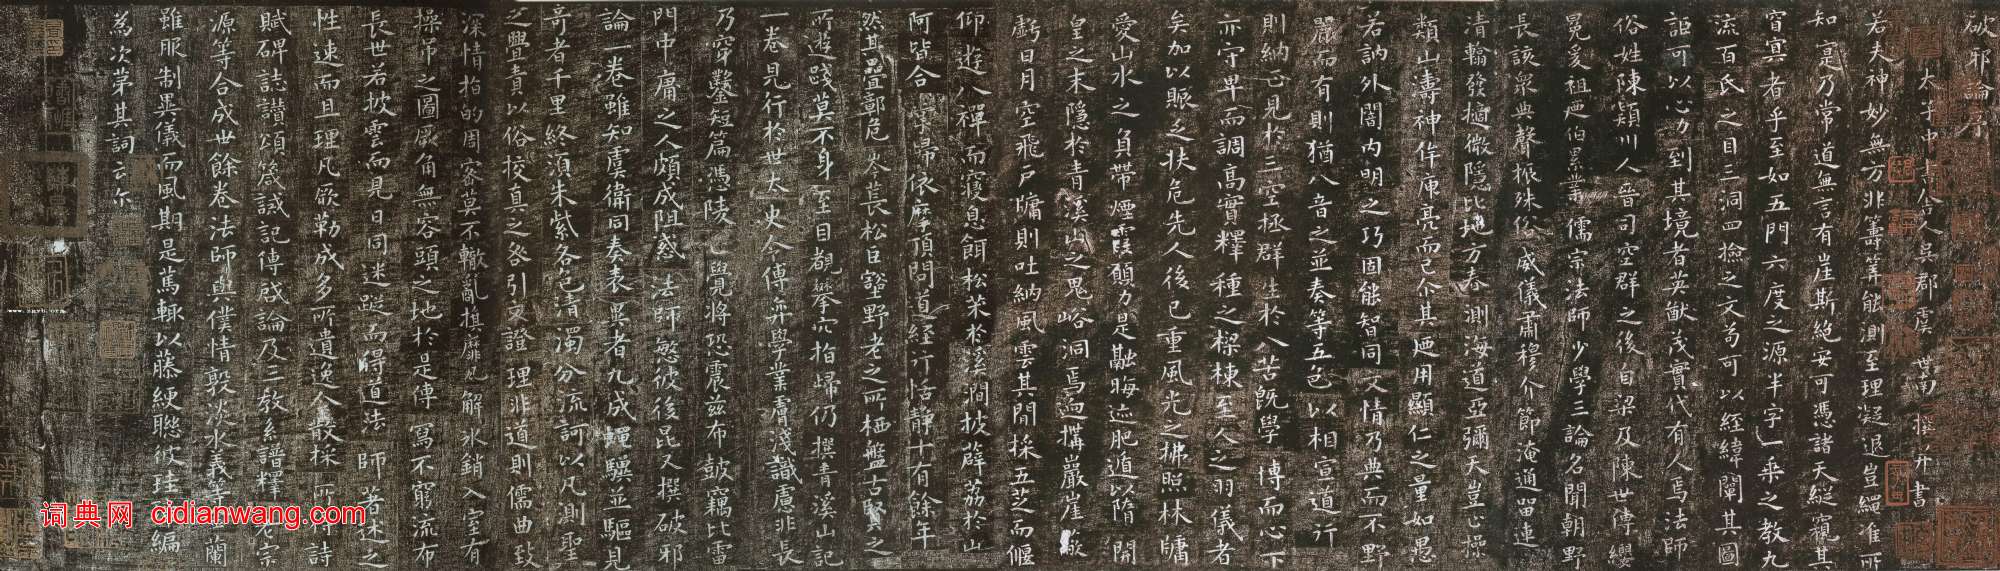 破邪論序
太子中書舍人吳郡虞世南撰并書
若夫神妙無方非籌筭能測至理凝退豈繩准所
知寔乃常道無言有崖斯絕安可憑諸天縱窺其
窅冥者乎至如五門六度之源半字一乘之教九
流百氏之目三洞四撿之文苟可以經緯闡其圖
詎可以心力到其境者英猷茂實代有人焉法師
俗姓陳潁川人晉司空群之後自梁及陳世傳纓
冕爰祖迺伯累業儒宗法師少學三論名聞朝野
長該眾典聲振殊俗威儀肅穆介節淹通留連
清翰發擿微隱比地方春測海道亞彌天豈止操
類山濤神侔庾亮而已尒其迺用顯仁之量如愚
若訥外闇內明之巧固能智同文情乃典而不野
麗而有則猶八音之並奏等五色以相宣道行
則納正見於三空拯群生於八苦既學博而心下
亦守卑而調高實釋種之樑棟至人之羽儀者
矣加以賑乏扶危先人後已重風光之拂照林牖
愛山水之負帶煙霞願力是融晦迹肥遁以隋開
皇之末隱於青溪山之鬼峪洞焉迥搆巖崖
虧日月空飛戶牖則吐納風雲其間採五芝而偃
仰遊八禪而寢息餌松朮於溪澗披薜荔於山
阿皆合掌歸依摩頂問道經行恬靜十有餘年
然其疊鄣危岑萇松巨壑野老之所栖盤古賢之
所遊踐莫不身至目覩攀穴指歸仍撰青溪山記
一卷見行於世太史令傅弈學業膚淺識慮非長
乃穿鑿短篇憑陵正覺將恐震茲布鼓竊比雷
門中庸之人頗成阻惑法師愍彼後昆又撰破邪
論一卷雖知虞衛同奏表異者九成蠅驥並驅見
奇者千里終須朱紫各色清濁分流訶以凡測聖
之舋責以俗挍真之咎引文證理非道則儒曲致
深情指的周密莫不轍亂旗靡瓦解冰銷入室有
操帚之圖厥角無容頭之地於是傳寫不窮流布
長世若披雲而見日同迷蹤而得道法師著述之
性速而且理凡厥勒成多所遺逸今散採所詩
賦碑誌讚頌箴誡記傳啟論及三教系譜釋老宗
源等合成世餘卷法師與僕情敦淡水義等金蘭
雖服制異儀而風期是篤輒以藤綆聯彼珪編
為次第其詞云尔
www.zxyb.org
词典网 cidianwang.com